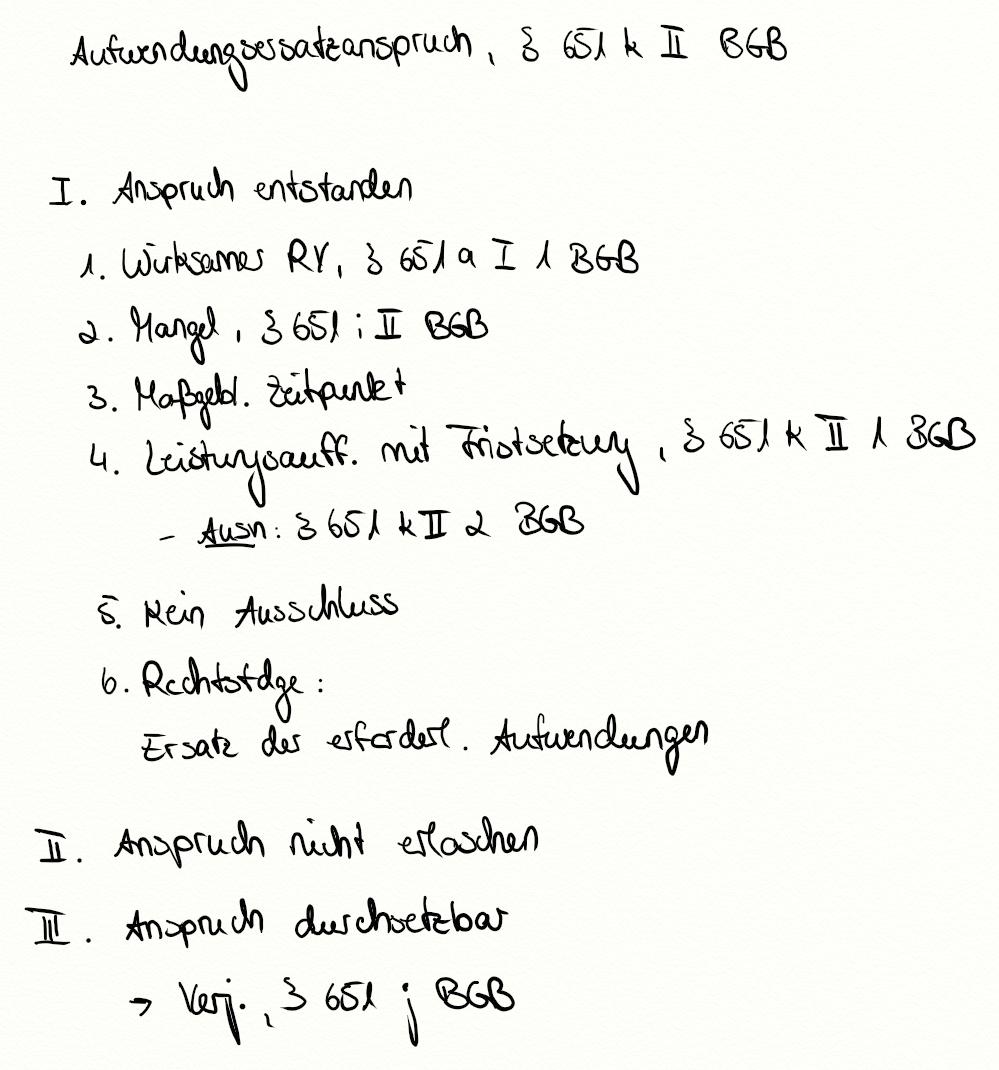 Aufwendungsersatzanspruch, § 651 k II BGB
I. Anspruch entstanden
1. Wirksamer RV, § 651 a I 1 BGB
2. Mangel, § 651 i II BGB
3. Maßgebl. Zeitpunkt
4. Leistungsauff. mit Fristsetzung, § 651 k II 1 BGB
- Ausn: § 651 k II 2 BGB
5. Kein Ausschluss
6. Rechtsfolge:
Ersatz der erforderl. Aufwendungen
II. Anspruch nicht erloschen
III. Anspruch durchsetzbar
→ Verj., § 651 j BGB